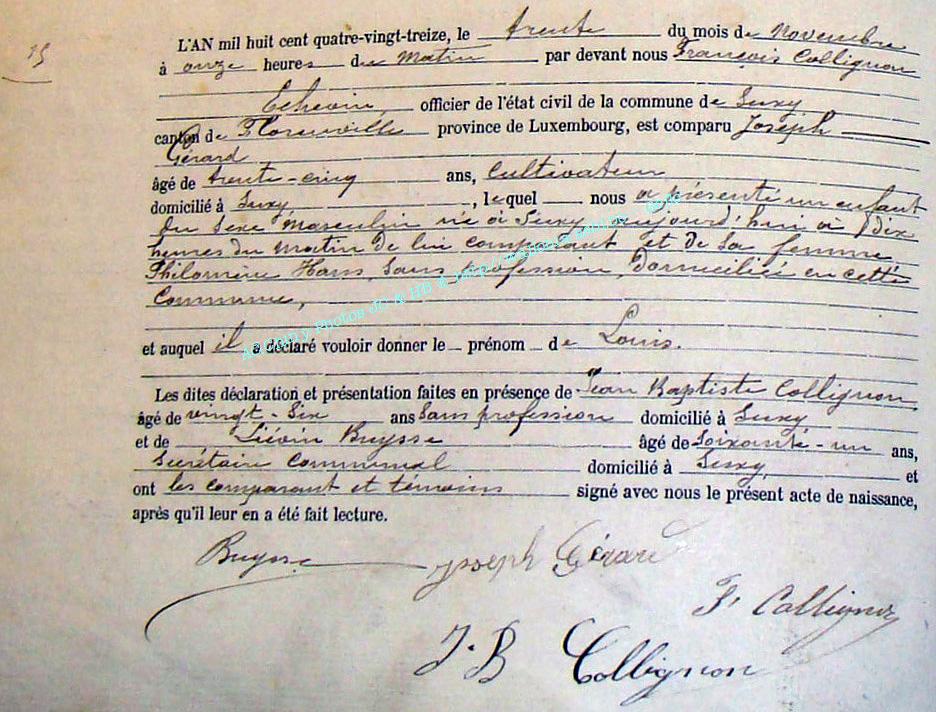 15
L'AN mil huit cent quatre-vingt-treize, le trente du mois de Novembre
à onze heures du Matin par devant nous François Collignon
Echevin officier de l'état civil de la commune de Suxy
canton de Florenville province de Luxembourg, est comparu Joseph
Gérard
âgé de trente-cinq ans, Cultivateur
domicilié à Suxy, lequel nous a présenté un enfant
du sexe masculin né à Suxy aujourd'hui à dix
heures du matin de lui comparant et de sa femme
Philomène Hans, sans profession, domiciliée en cette
Commune,
et auquel il a déclaré vouloir donner le prénom de Louis.
Les dites déclaration et présentation faites en présence de Jean Baptiste Collignon,
âgé de vingt-six ans Sans profession domicilié à Suxy
et de Liévin Buysse âgé de soixante-un ans,
Secrétaire Communal domicilié à Suxy, et
ont les comparant et témoins signé avec nous le présent acte de naissance,
après qu'il leur en a été fait lecture.
Buysse
Joseph Gérard
F. Collignon
J. B Collignon